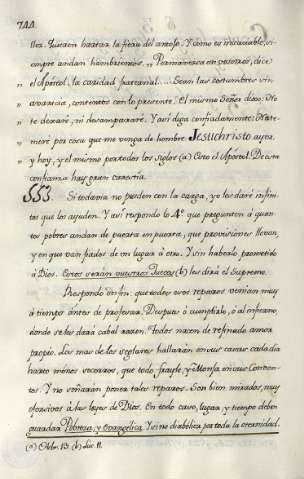 744.
llos. Quieren hartar la fiera del antojo. Y como es insaciable, si-
empre andan hambrientos. „ Permanezca en vosotros, dice
„ el Apóstol, la caridad fraternal.... Sean las costumbres sin
„ avaricia, contentos con lo presente. El mismo Señor dixo: No
„ te dexaré, ni desampararé. Y así diga confiadamente: No te-
„ meré por cosa que me venga de hombre. Jesuchristo ayer,
„ y hoy, y el mismo por todos los siglos (a) Esto el Apóstol. De esta
confianza hay gran carestía.
553. Si todavia no pueden con la carga, yo les daré infini-
tos que los ayuden. Y así respondo lo 4º que pregunten a quan-
tos pobres andan de puerta en puerta, que provisiones llevan,
y en que van fiados de un lugar á otro. Y sin haberlo prometido
á Dios. Estos serán vuestros Jueces (b) les dirá el Supremo.
Respondo en fin: que todos esos reparos venían muy
á tiempo ántes de profesar. Despues ó cumplirlo, ó al infierno,
donde se les dará cabal razon. Todos nacen de refinado amor
propio. Los mas de los seglares hallarán en sus casas cada dia
harto menos socorros, que todo Frayle, y Monja en sus Conven-
tos. Y no soñarán poner tales reparos. Son bien mirados, muy
ofensivos á las leyes de Dios. En todo caso, lugar, y tiempo deben
guardar Pobreza, y Evangélica. Y si no diablica por toda la eternidad.
(a) Hebr. 13. (b) Luc. 11.